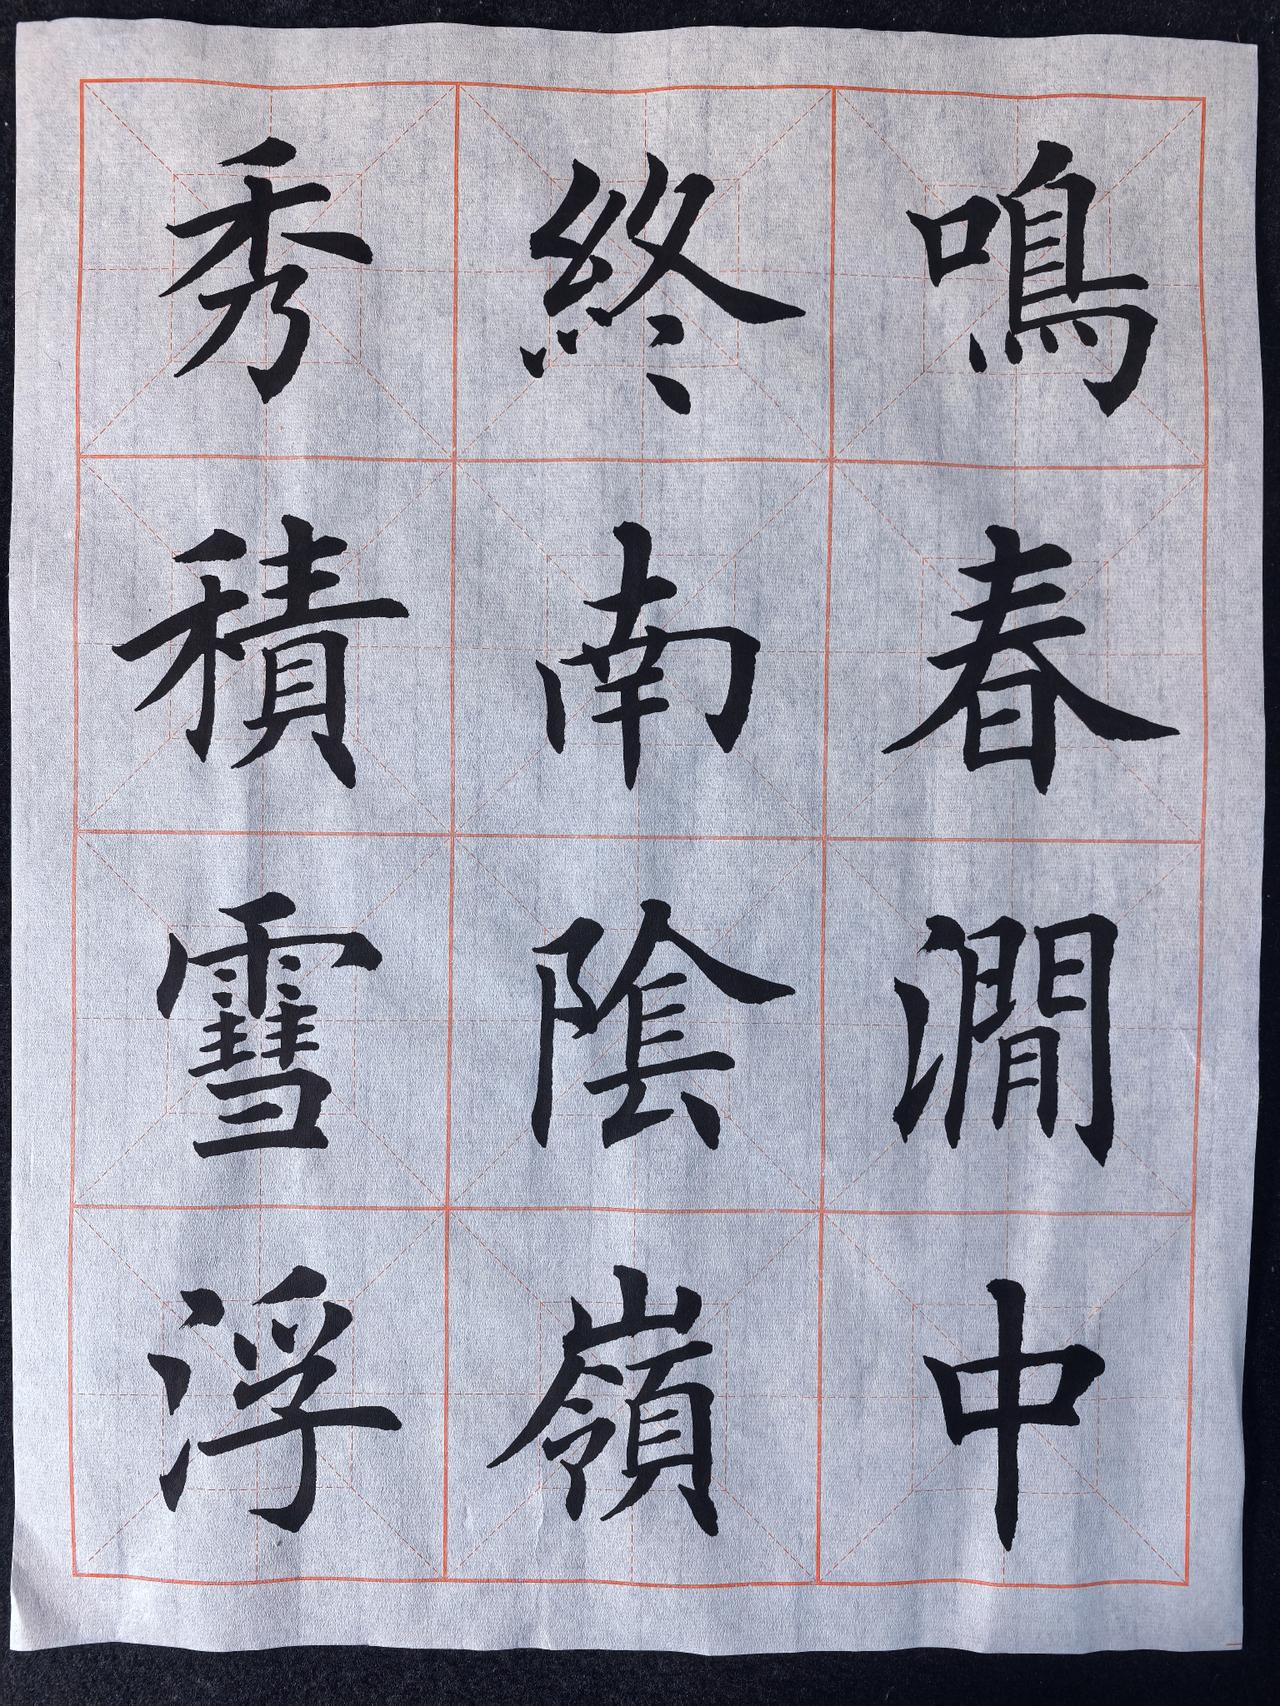 鳴春澗中
終南陰嶺
秀積雪浮